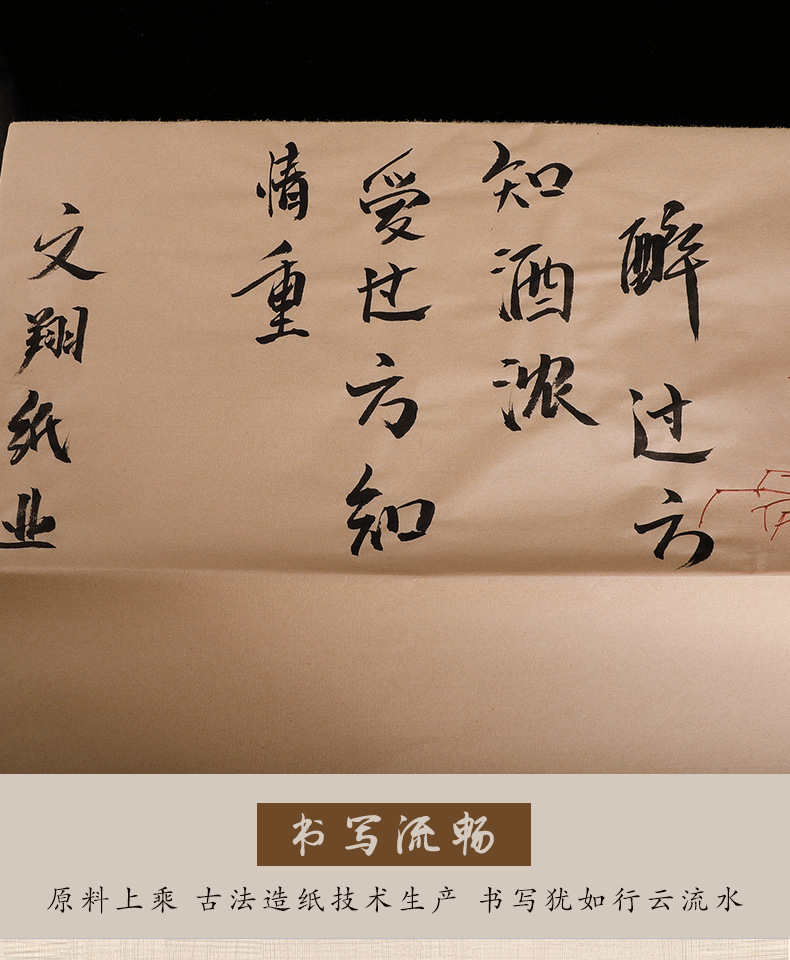 醉过方
知酒浓
爱过方知
情重
文翔纸业
书写流畅
原料上乘 古法造纸技术生产 书写犹如行云流水